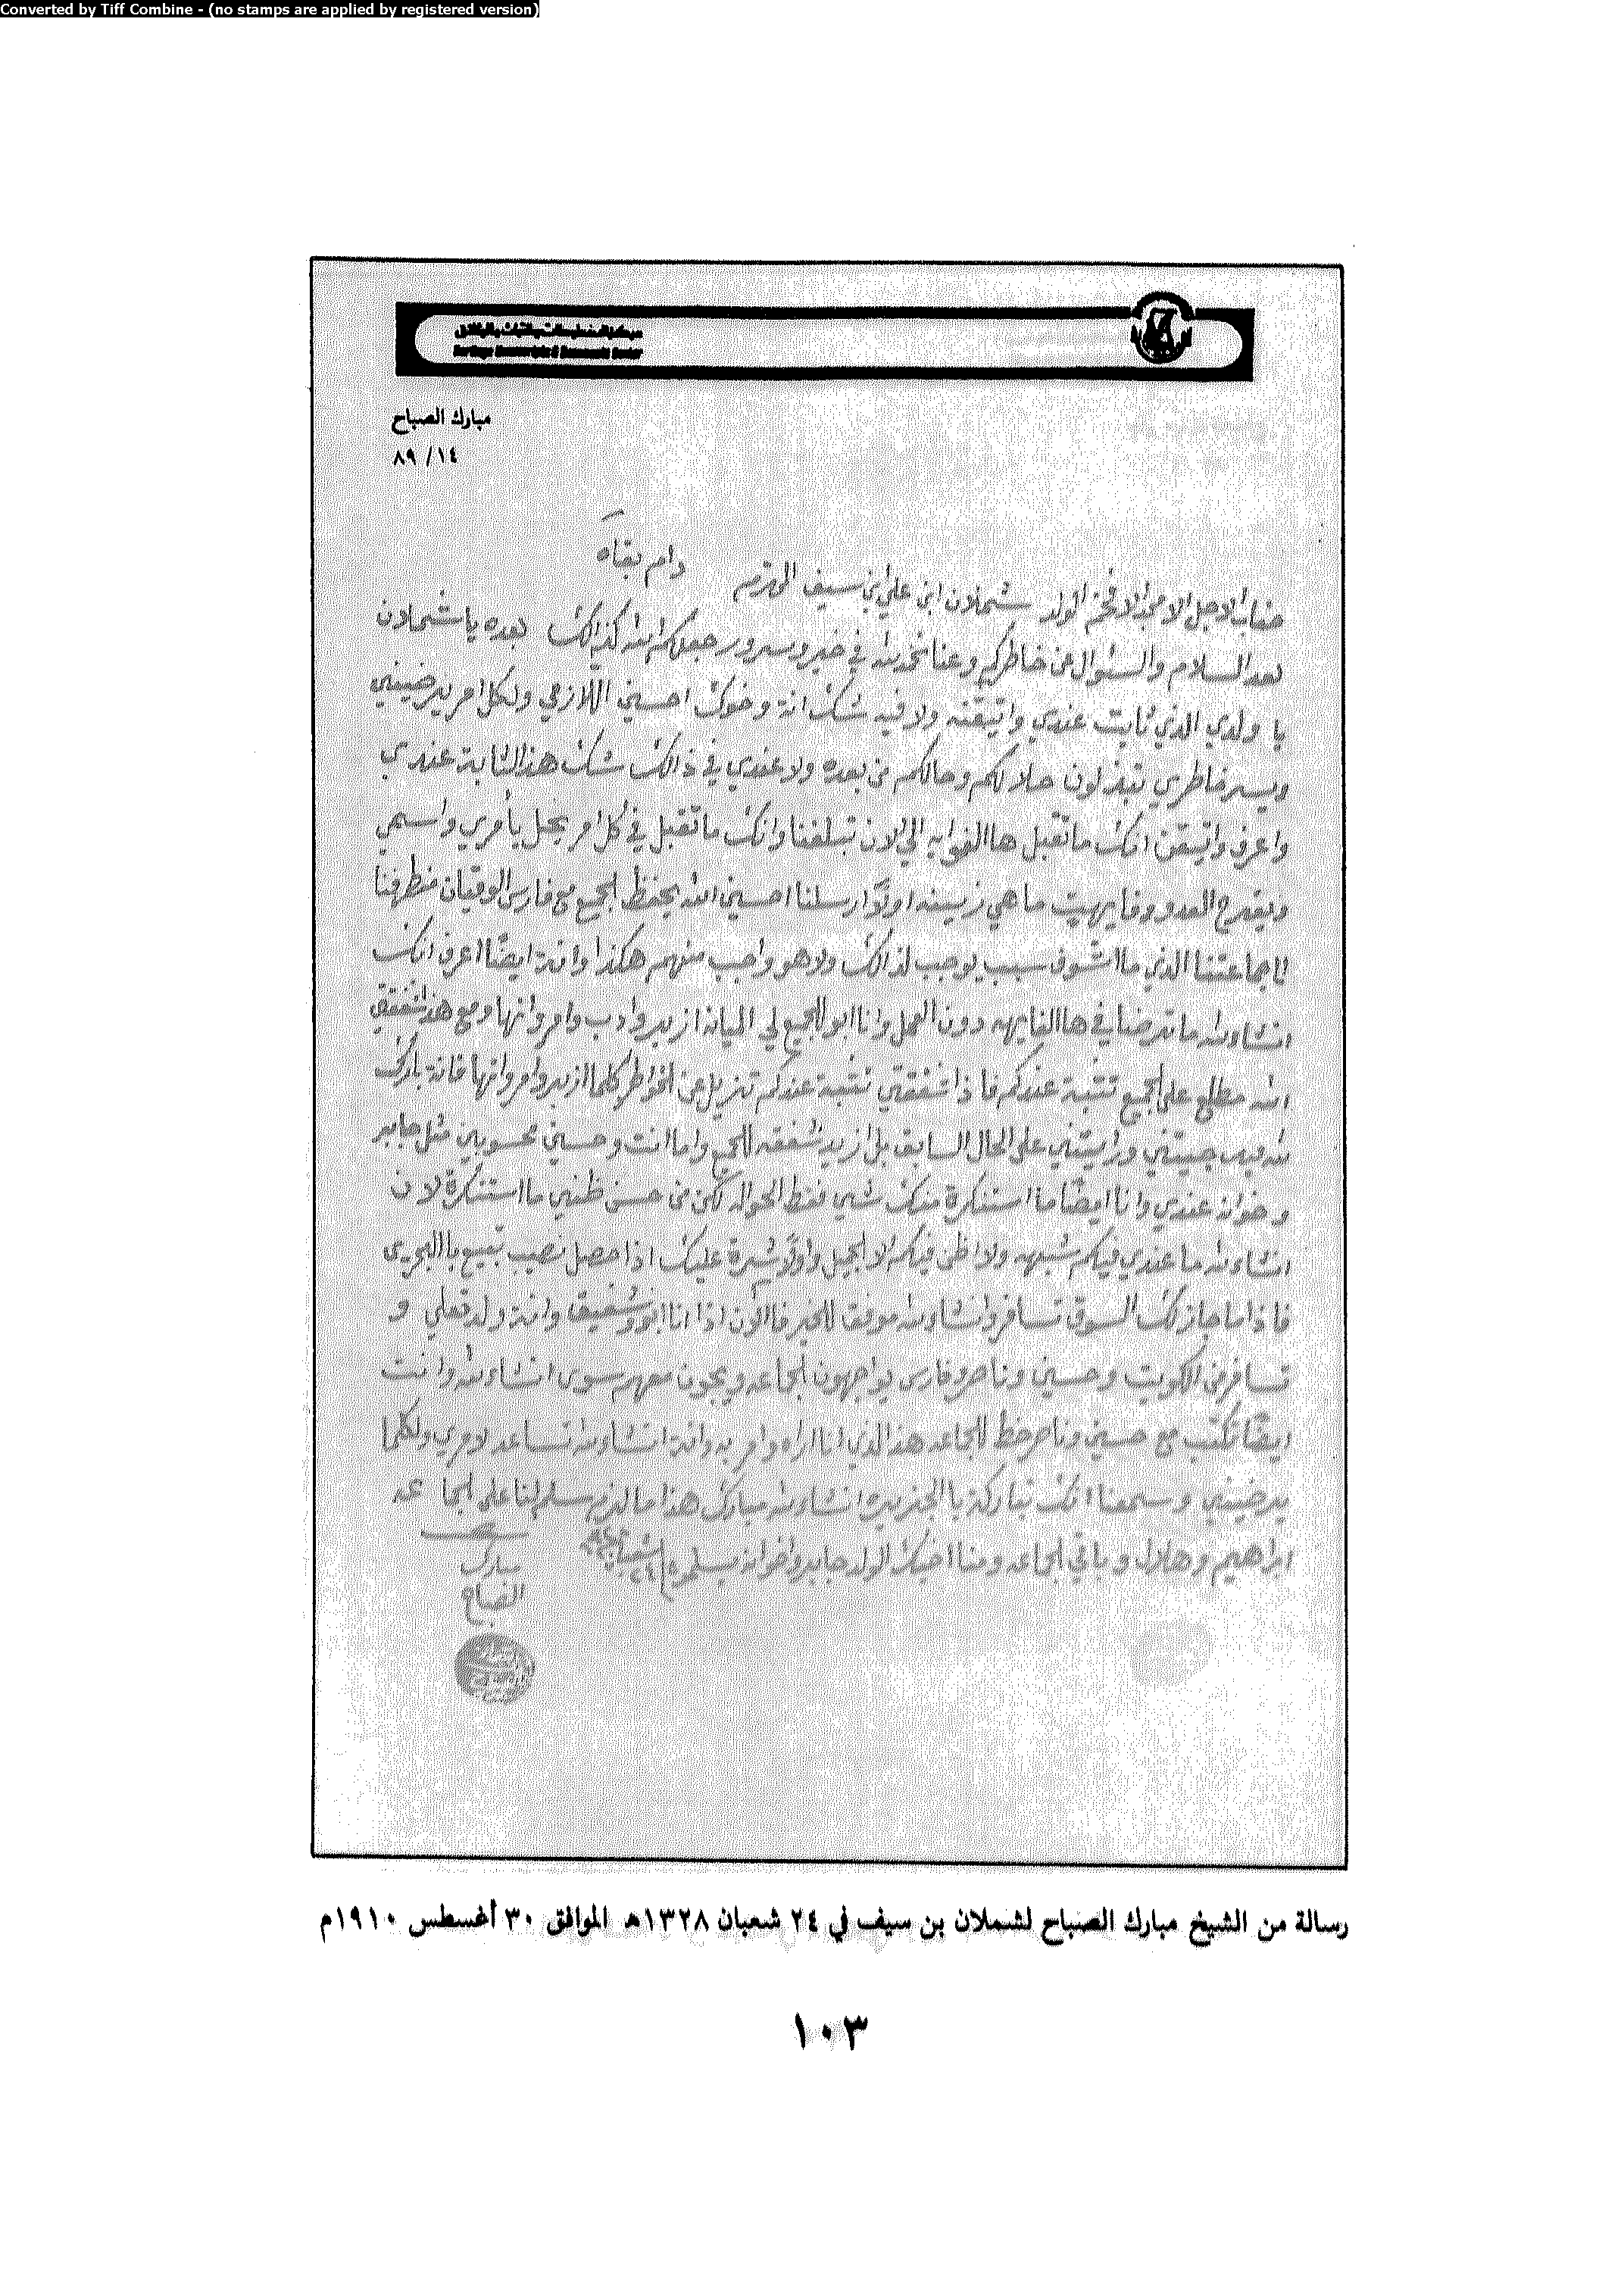 Converted by Tiff Combine - (no stamps are applied by registered version)
مبارك الصباح
٨٩ /١٤
جناب الاجل الامجد الافخم الولد شملان ابن علي ابن سيف المحترم دام بقاه
بعد السلام والسئوال عن خاطركم وعنا نحمد لله في خير وسرور جعلكم الله كذالك بعده ياشملان
يا ولدي الذي ثابت عندي واتيقنه ولا فيه شك انة وخوك احسين اللازمي ولكل امر يرضيني
ويسر خاطري تبذلون حلالكم وحالكم من بعده ولا عندي في ذالك شك هذا الثابة عندي
واعرف واتيقن انك ما تقبل هاالغوايه الي الان تبلغنا وانك ما تقبل في كل امر يخل يأمري واسمي
ويفرح العدو وما هي زينه اولاً ارسلنا احسين الله يحفظ الجميع مع فارس الوقيان
لاجماعتنا الذي مااشوف سبب يوجب لذالك ولا هو واجب منهم هكذا وانة ايضاً اعرف انك
انشاءلله ما ترضا في هاالغايه دون العمل وانا ابو الجميع لي اليانه ازير وادب وامر وانها ومع هذا شفقتي
الله مطلع على الجميع تثبة عندكم فاذا شفقتي ثبة عندكم تنزيل عن الخواطر كلما ازير وامر وانها فانة بارك
لله فيك جيتني ورايتني على الحال السابق بل ازيد شفقه للجميع واما انت وحسين محسوبين مثل جابر
وخوانه عندي وانا ايضاً ما استنكرة منك شي فقط الحواله لكن من حسن ظني ما استنكرة لان
انشاءلله ما عندي فيكم شبهه ولا ظن فيكم الا الجميل واولاً شرة عليك اذا حصل نصيب تبيع باالبحرين
فاذا ما جاز لك السوق تسافر وانشاءلله موفق للخير فاالان اذا انا ابو وشفيق وانة ولد تعلي و
تسافر من الكويت وحسين وناصر وفارس يواجهون الجماعه ويجون معهم سوى انشاءلله وانت
ايضاً تكتب مع حسين وناصر خط للجماعه هذا الذي انا اراه وامر به وانة انشاءلله تساعد لامري ولكلما
يرضيني وسمعنا انك تباركة باالجزيره انشاءلله مبارك هذا ما لزم سلم لنا على الجماعه
ابراهيم وهلال وباقي الجماعه ومنا اخيك الولد جابر واخوانه يسلمو
٢٤ شعبان
مبارك
الصباح
رسالة من الشيخ مبارك الصباح لشملان بن سيف في ٢٤ شعبان ١٣٢٨هـ الموافق ٣٠ أغسطس ١٩١٠م
١٠٣